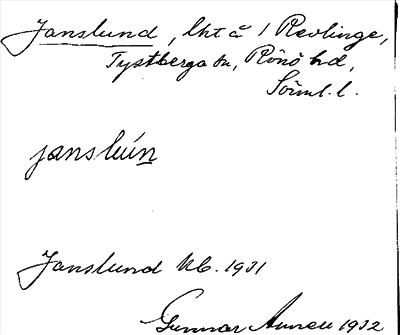 Janslund, lht å 1 Revlinge,
Tystberga sn, Rönö hd,
Södml. l.
janslún
Janslund Kb. 1931
Gunnar 1932